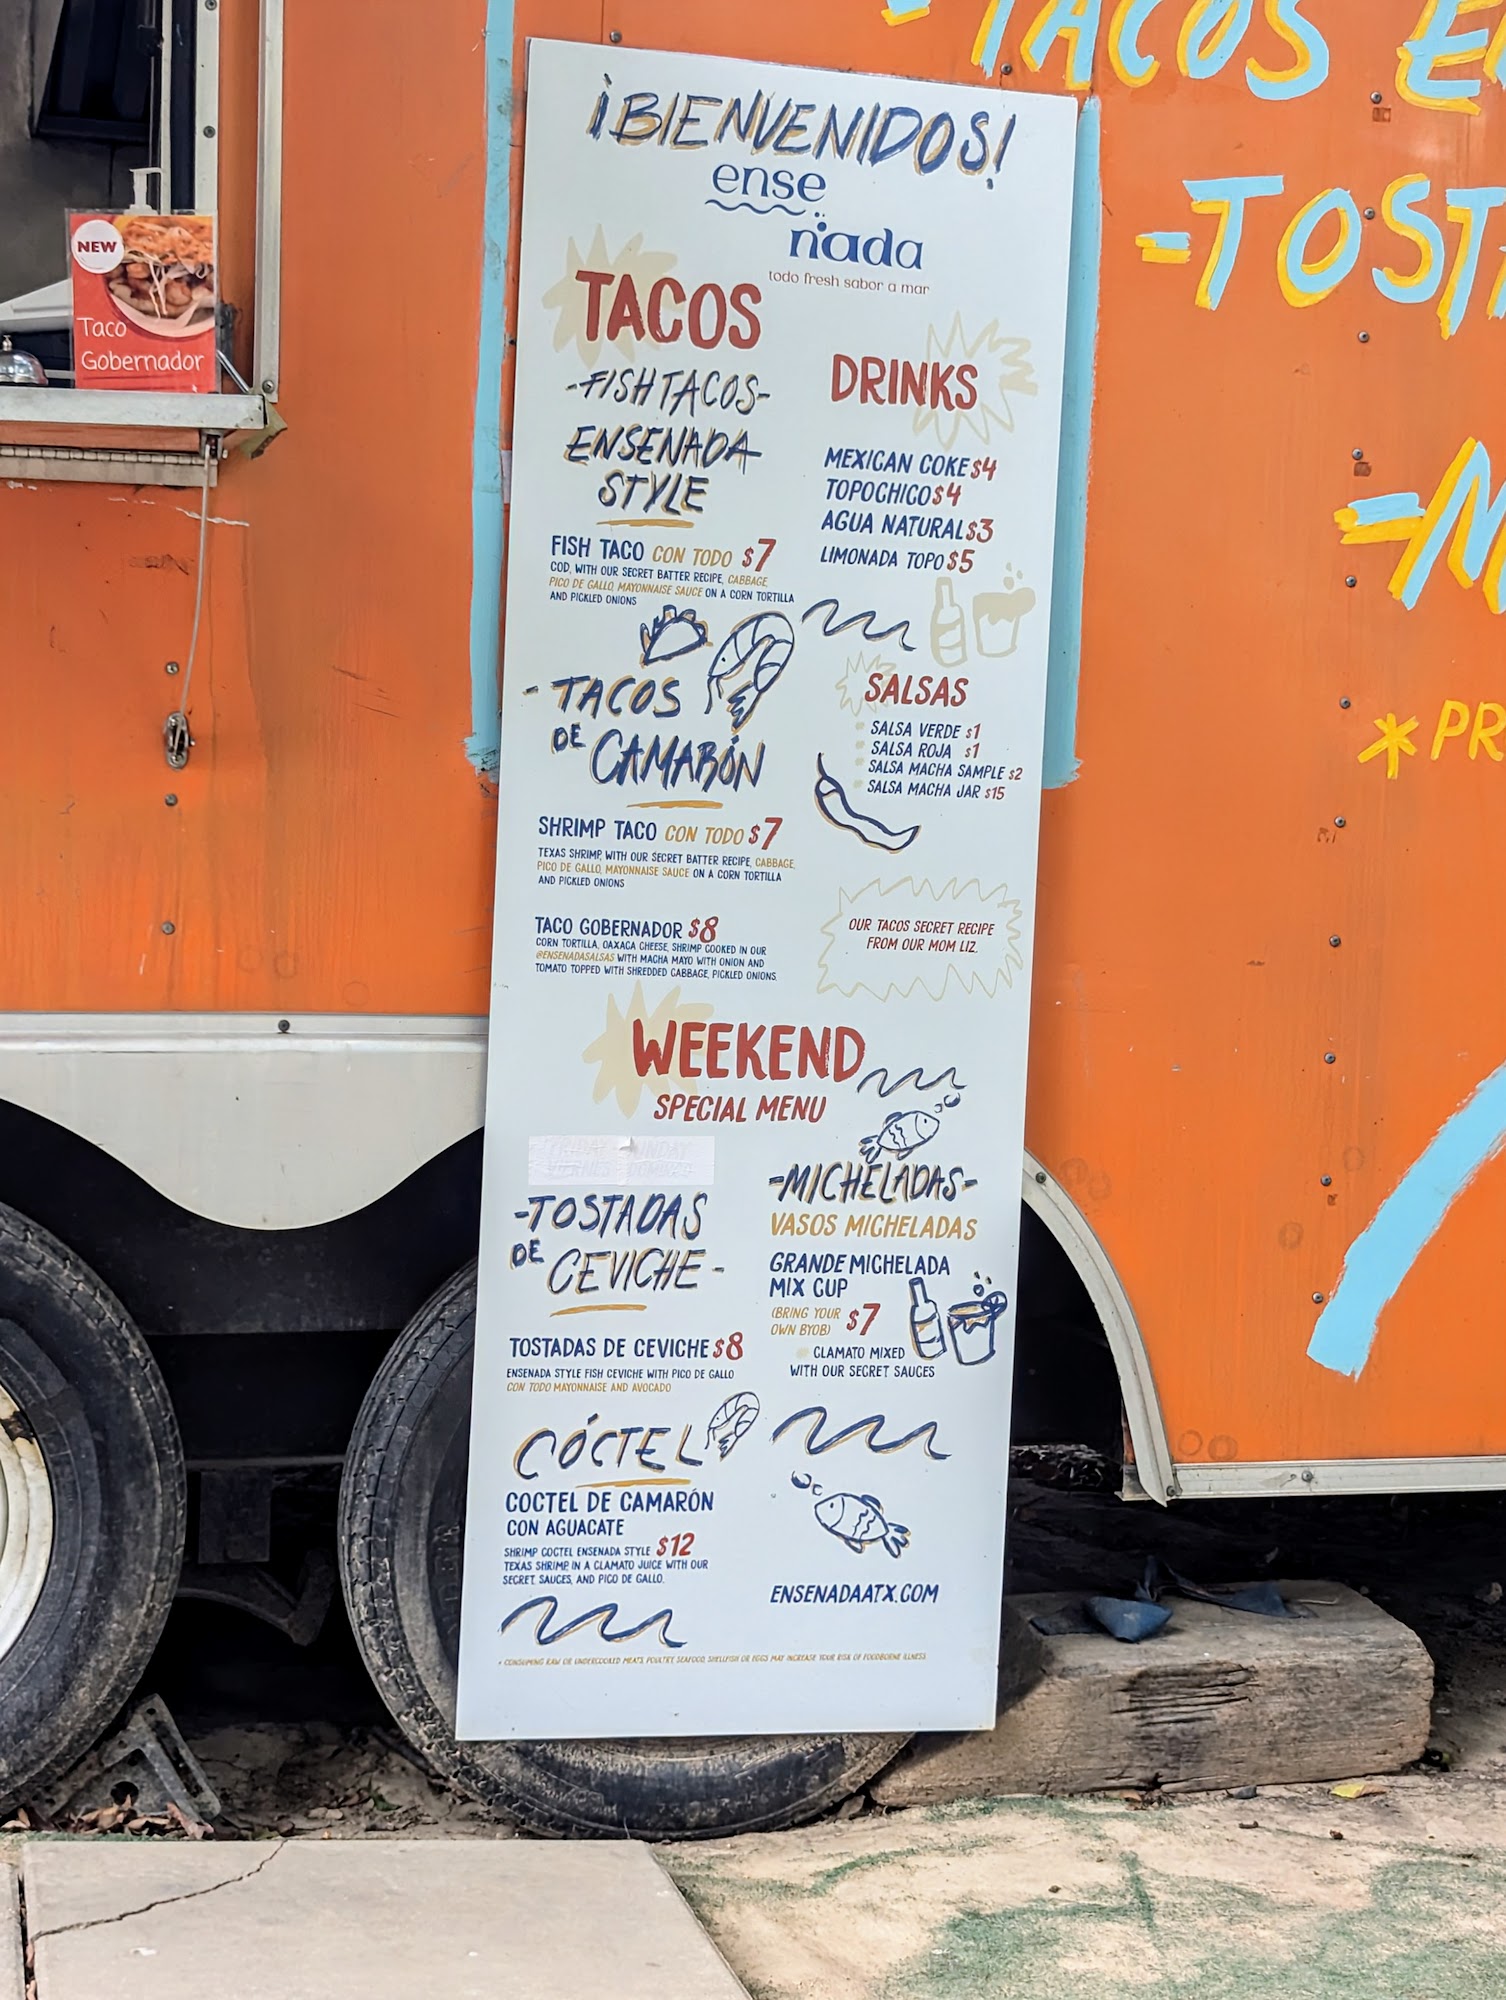 ¡BIENVENIDOS!
ense
nada
todo fresh sabor a mar
TACOS
-FISH TACOS-
ENSENADA
STYLE
FISH TACO CON TODO $7
COD, WITH OUR SECRET BATTER RECIPE, CABBAGE,
PICO DE GALLO, MAYONNAISE SAUCE ON A CORN TORTILLA
AND PICKLED ONIONS
- TACOS
DE CAMARÓN
SHRIMP TACO CON TODO $7
TEXAS SHRIMP, WITH OUR SECRET BATTER RECIPE, CABBAGE,
PICO DE GALLO, MAYONNAISE SAUCE ON A CORN TORTILLA
AND PICKLED ONIONS
TACO GOBERNADOR $8
CORN TORTILLA, OAXACA CHEESE, SHRIMP COOKED IN OUR
@ENSENADASALSAS WITH MACHA MAYO WITH ONION AND
TOMATO TOPPED WITH SHREDDED CABBAGE, PICKLED ONIONS.
DRINKS
MEXICAN COKE $4
TOPOCHICO $4
AGUA NATURAL $3
LIMONADA TOPO $5
SALSAS
SALSA VERDE $1
SALSA ROJA $1
SALSA MACHA SAMPLE $2
SALSA MACHA JAR $15
OUR TACOS SECRET RECIPE
FROM OUR MOM LIZ.
WEEKEND
SPECIAL MENU
-TOSTADAS
DE CEVICHE-
TOSTADAS DE CEVICHE $8
ENSENADA STYLE FISH CEVICHE WITH PICO DE GALLO
CON TODO MAYONNAISE AND AVOCADO
CÓCTEL
COCTEL DE CAMARÓN
CON AGUACATE
SHRIMP COCTEL ENSENADA STYLE $12
TEXAS SHRIMP, IN A CLAMATO JUICE WITH OUR
SECRET SAUCES, AND PICO DE GALLO.
-MICHELADAS-
VASOS MICHELADAS
GRANDE MICHELADA
MIX CUP
(BRING YOUR
OWN BYOB) $7
CLAMATO MIXED
WITH OUR SECRET SAUCES
ENSENADAATX.COM
* CONSUMING RAW OR UNDERCOOKED MEATS, POULTRY, SEAFOOD, SHELLFISH OR EGGS MAY INCREASE YOUR RISK OF FOODBORNE ILLNESS
NEW
Taco
Gobernador
-TACOS
-TOST
* PR